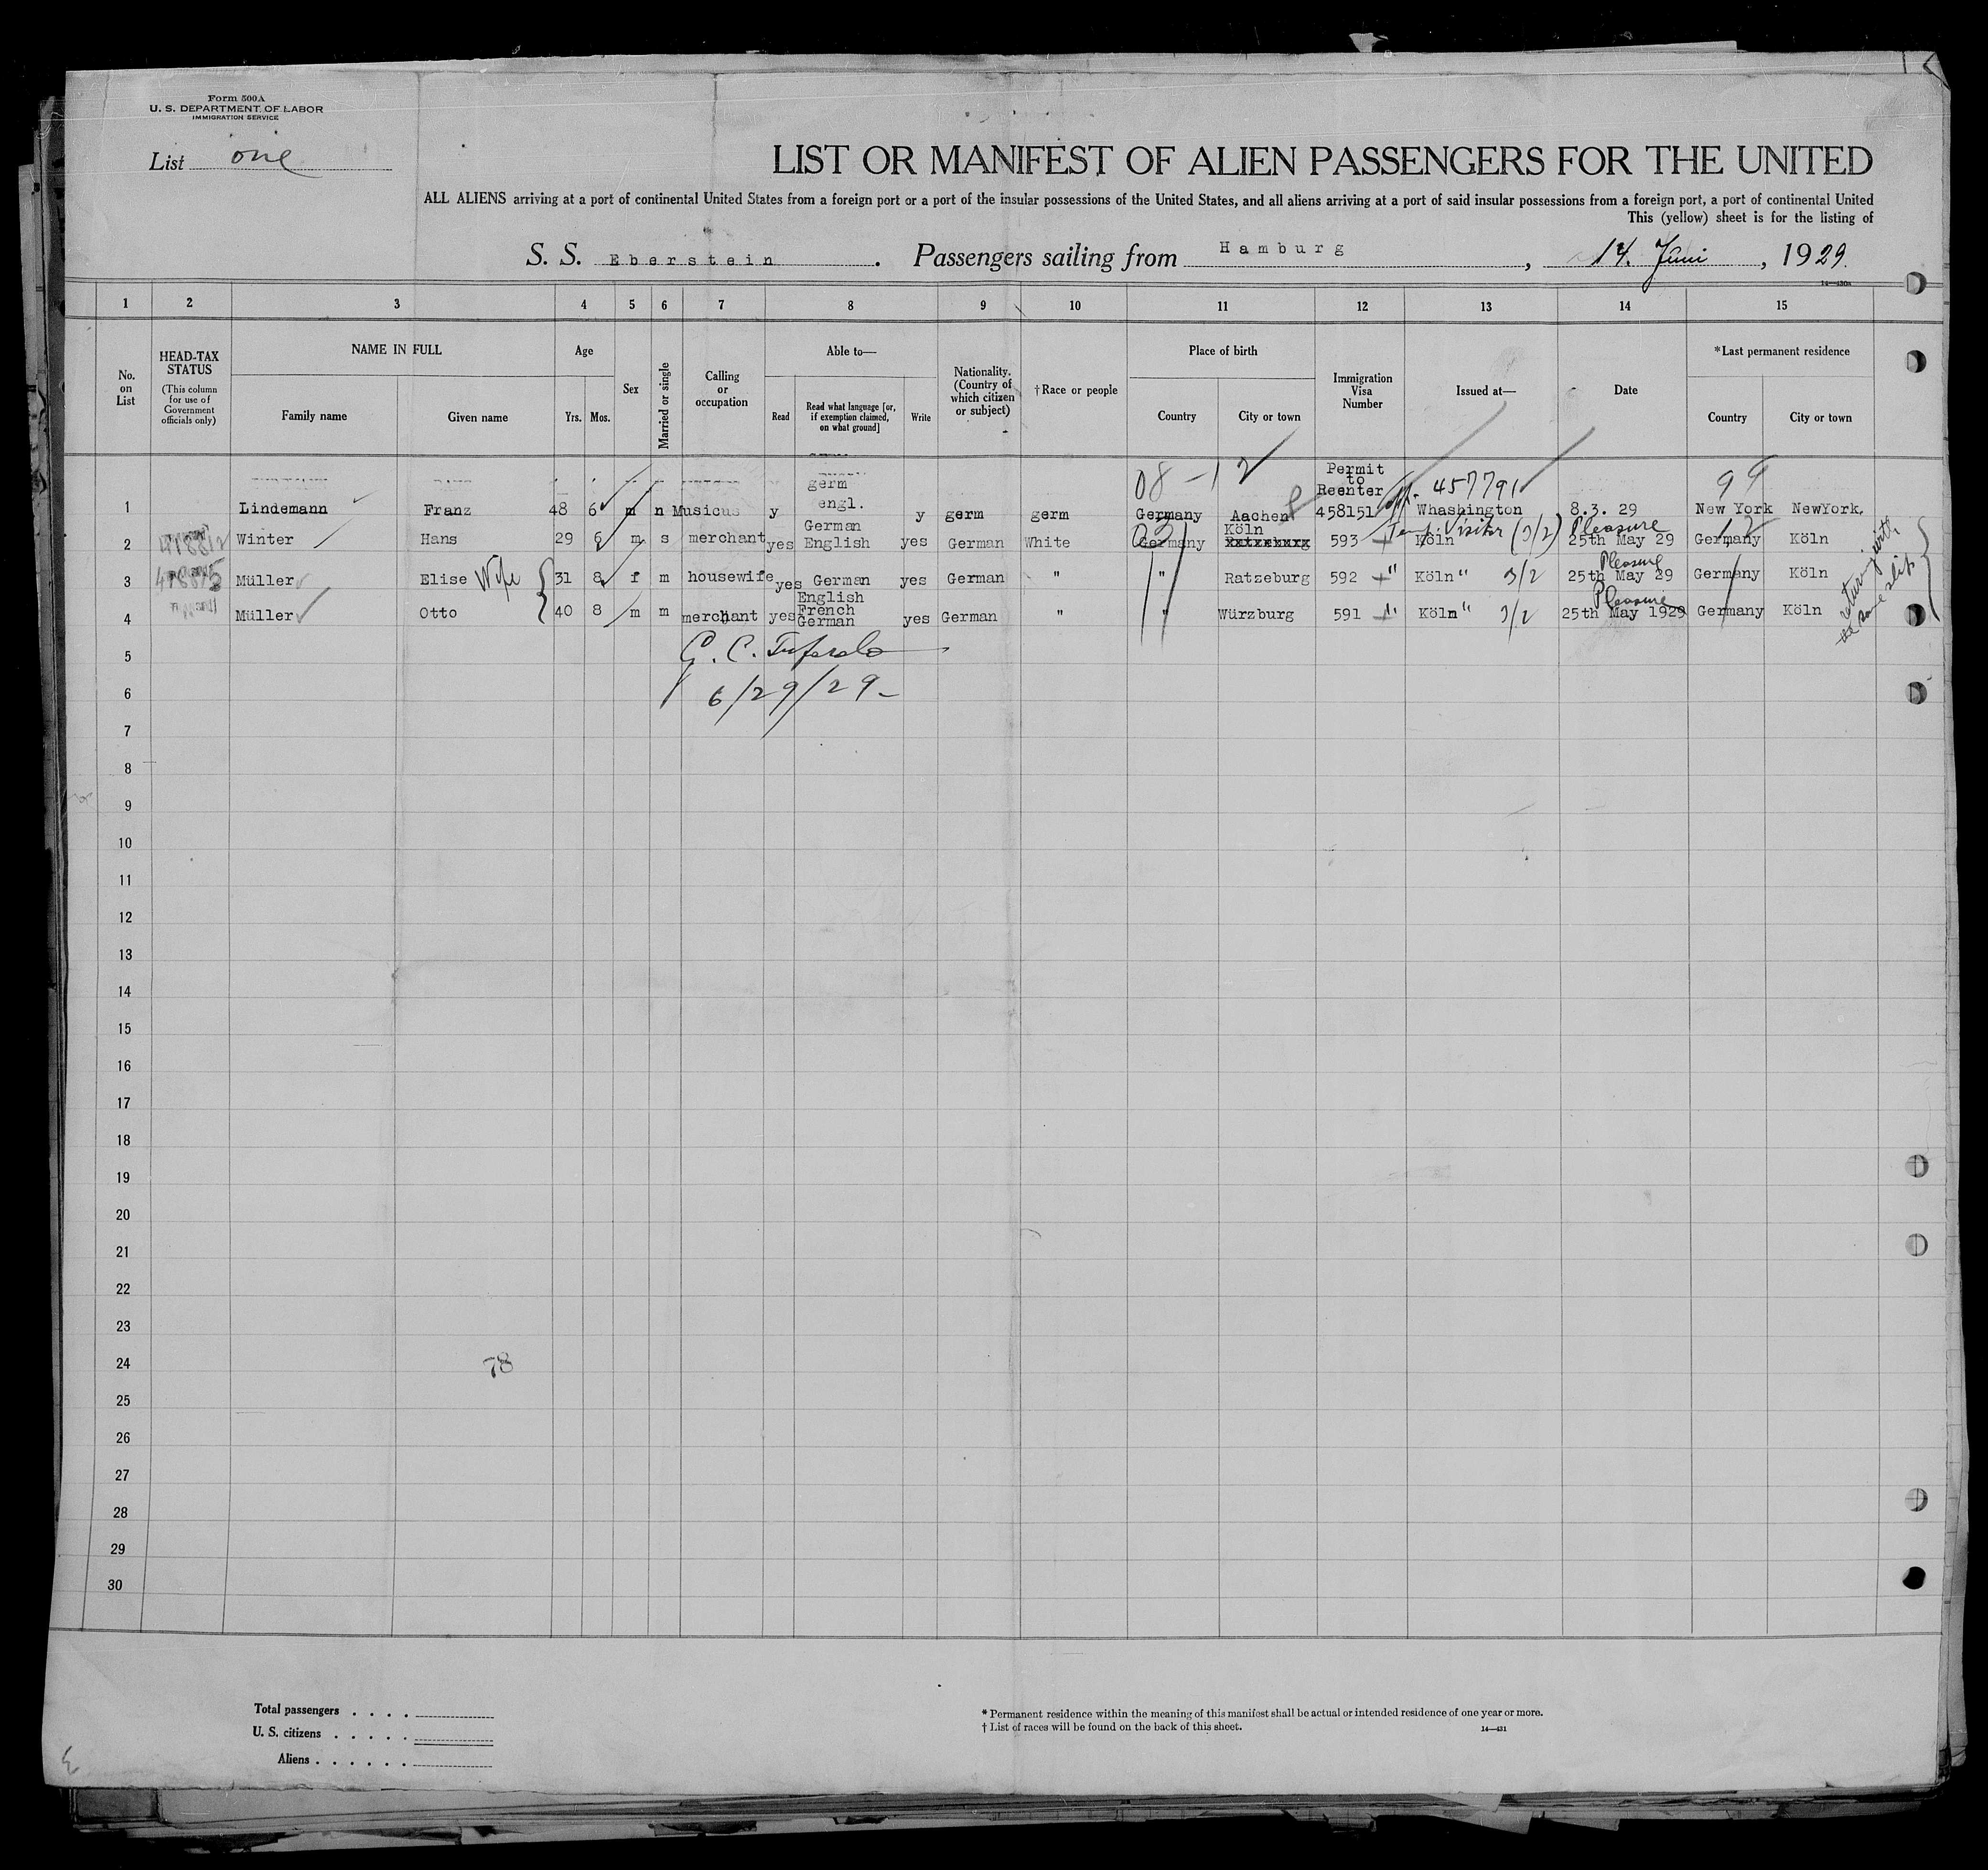 Form 500A
U. S. DEPARTMENT OF LABOR
IMMIGRATION SERVICE
List one
LIST OR MANIFEST OF ALIEN PASSENGERS FOR THE UNITED
ALL ALIENS arriving at a port of continental United States from a foreign port or a port of the insular possessions of the United States, and all aliens arriving at a port of said insular possessions from a foreign port, a port of continental United
This (yellow) sheet is for the listing of
S. S. Eberstein. Passengers sailing from Hamburg, 14. Juni, 1929.
14—430a
1 2 3 4 5 6 7 8 9 10 11 12 13 14 15
No. on List
HEAD-TAX STATUS (This column for use of Government officials only)
NAME IN FULL
Family name Given name
Age
Yrs. Mos.
Sex
Married or single
Calling or occupation
Able to—
Read Read what language [or, if exemption claimed, on what ground] Write
Nationality. (Country of which citizen or subject)
†Race or people
Place of birth
Country City or town
Immigration Visa Number
Issued at—
Date
*Last permanent residence
Country City or town
08-12 Permit to Reenter 457791 99
1 Lindemann Franz 48 6 m n Musicus y germ engl. y germ germ Germany Aachen 458151 Whashington 8.3. 29 New York NewYork,
2 Winter Hans 29 6 m s merchant yes German English yes German White Germany Köln 593 Köln Temp. Visitor (3/2) Pleasure 25th May 29 Germany Köln
3 Müller Elise Wife 31 8 f m housewife yes German yes German " " Ratzeburg 592 " Köln " 3/2 Pleasure 25th May 29 Germany Köln
4 Müller Otto 40 8 m m merchant yes English French German yes German " " Würzburg 591 " Köln " 3/2 Pleasure 25th May 1929 Germany Köln
returning with the same ship
5
6 6/29/29
7
8
9
10
11
12
13
14
15
16
17
18
19
20
21
22
23
24 78
25
26
27
28
29
30
Total passengers . . . .
U. S. citizens . . . . .
Aliens . . . . . .
* Permanent residence within the meaning of this manifest shall be actual or intended residence of one year or more.
† List of races will be found on the back of this sheet.
14—431